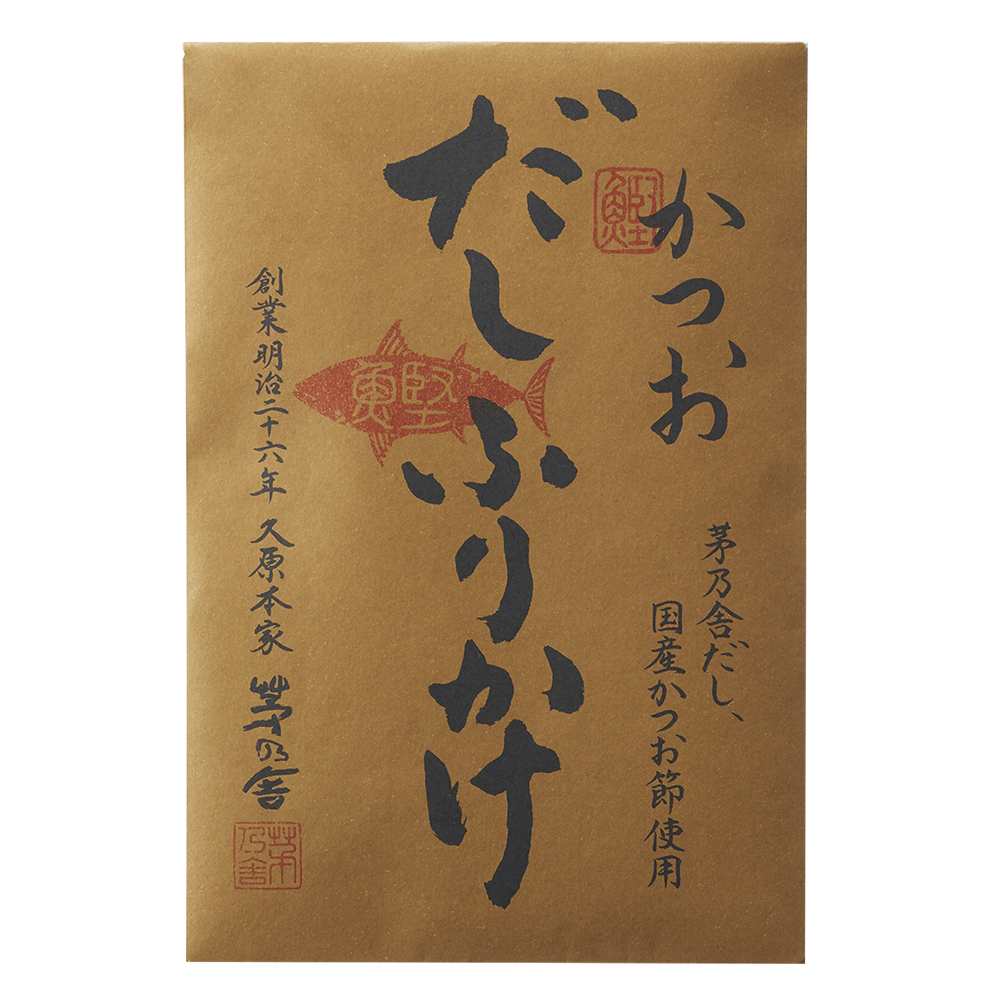 かつお
鰹
だしふりかけ
鰹
茅乃舎だし、
国産かつお節使用
創業明治二十六年 久原本家 茅乃舎
茅乃舎